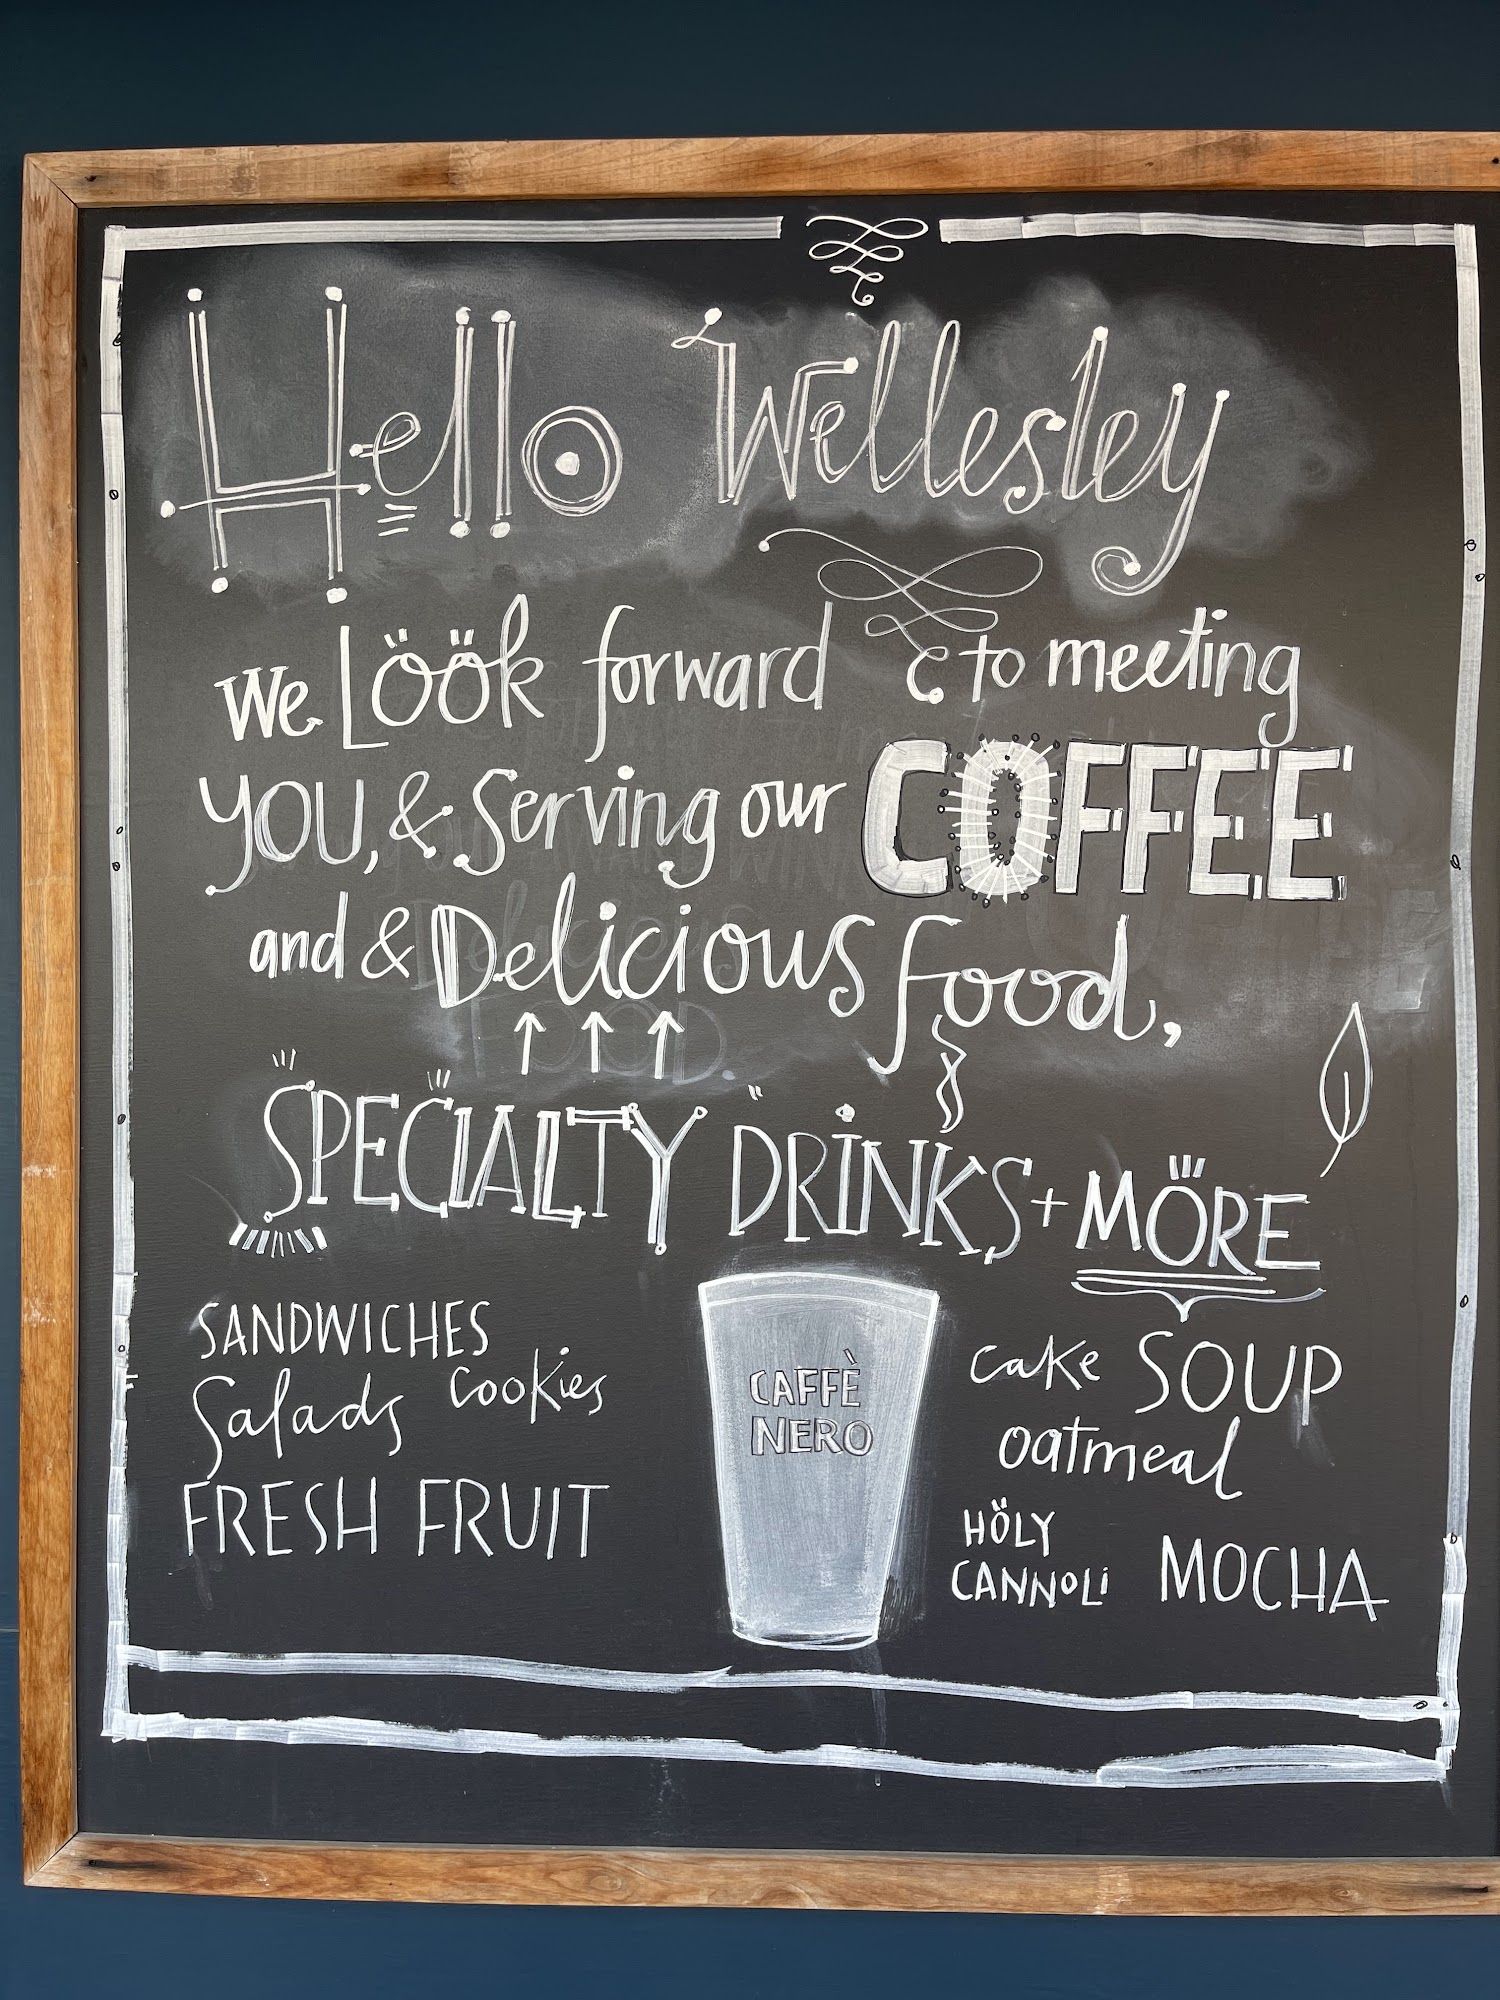 Hello Wellesley
We Löök forward to meeting
YOU, & Serving our COFFEE
and & Delicious food,
SPECIALTY DRINKS + MÖRE
SANDWICHES
Salads cookies
FRESH FRUIT
CAFFÈ
NERO
cake SOUP
oatmeal
HÖLY
CANNOLI MOCHA